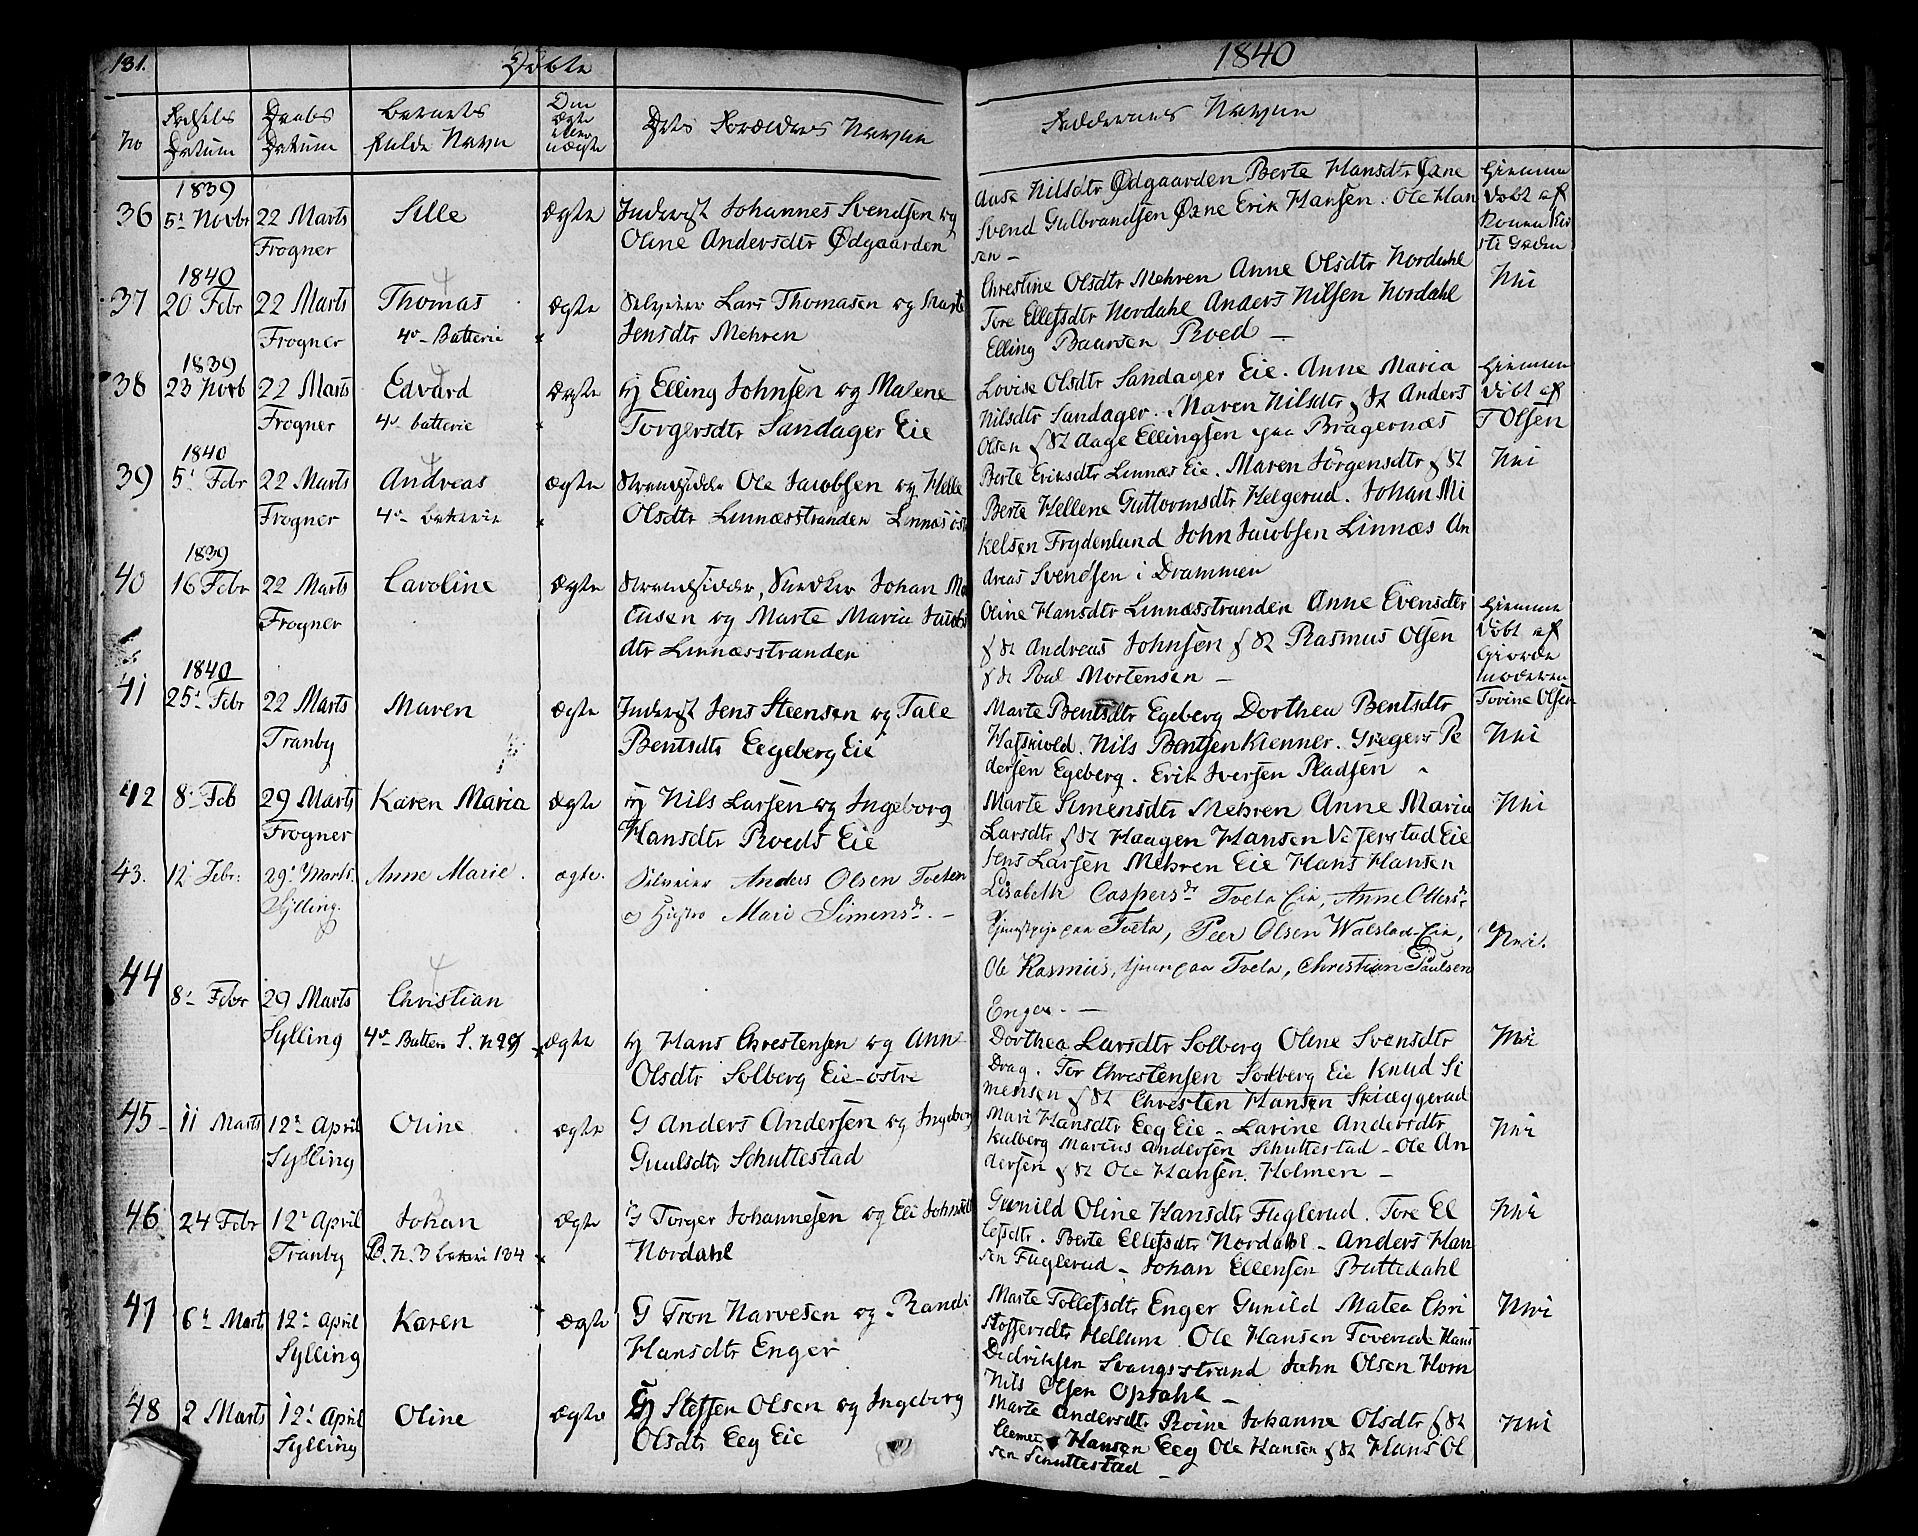 131.
Døbte
1840
No
Fødsels Datum
Daabs Datum
Barnets fulde Navn
Om ægte eller uægte
Dets Forældres Navne
Faddernes Navne
36
1839
5t Novbr
22 Marts
Frogner
Sille
ægte
Inderst Johannes Svendsen og
Oline Andersdtr Ødgaarden
Aase Nilsdtr Ødgaarden Berte Hansdtr Øxne
Svend Gulbrandsen Øxne Erik Hansen. Ole Han
sen –
Hiemme
døbt af
37
1840
20 Febr
22 Marts
Frogner
Thomas
4de Batterie
ægte
Selveier Lars Thomasen og Marte
Jensdtr Mehren
Chrestine Olsdtr Mehren Anne Olsdtr Nordahl
Tore Ellefsdtr Nordahl Anders Nilsen Nordahl
Elling Paursen Roed –
Nei
38
1839
23 Novb
22 Marts
Frogner
Edvard
4de batterie
ægte
Elling Johnsen og Malene
Torgersdtr Sandager Eie
Lovise Olsdtr Sandager Eie. Anne Maria
Nilsdtr Sandager. Maren Nilsdtr f St Anders
Olsen f St Aage Ellingsen paa Bragernæs
Hiemme
døbt af
T Olsen
39
1840
5t Febr
22 Marts
Frogner
Andreas
4de
ægte
Strandsidder Ole Jacobsen og Helle
Olsdtr Linnæsstranden
Berte Eriksdtr Linnæs Eie. Maren Jörgensdtr f St
Berte Hellene Guttormsdtr Helgerud. Johan Mi
kelsen Frydenlund John Jacobsen Linnæs An
dreas Svendsen i Drammen
Nei
40
1839
16 Febr
22 Marts
Frogner
Caroline
ægte
Strandsidder, Snedker Johan Ma
tisen og Marte Maria Jacobs
dtr Linnæsstranden
Oline Hansdtr Linnæsstranden Anne Evensdtr
f St Andreas Johnsen f St Rasmus Olsen
f St Poul Mortensen –
Hiemme
døbt af
Giorde
moderen
Tovine Olsen
41
1840
25t Febr
22 Marts
Tranby
Maren
ægte
Inderst Jens Steensen og Tale
Bentsdtr Eegeberg Eie
Marte Bentsdtr Egeberg Dorthea Bentsdtr
Nils Bentsen Kienner. Gregers Pe
dersen Egeberg. Erik Iversen Pladsen
Nei
42
8t Feb
29 Marts
Frogner
Karen Maria
ægte
Nils Larsen og Ingeborg
Hansdtr Roeds Eie
Marte Simensdtr Mehren Anne Maria
Larsdtr f St Haagen Hansen Vefferstad Eie
Jens Larsen Mehren Eie Hans Hansen
Nei
43.
12t Febr:
29t Marts.
Sylling.
Anne Marie.
ægte.
Selveier Anders Olsen Tveten
og Hustro Mari Simensdr. –
Lisabethe Caspersdr Tveta Eie, Anne Ottersdr
Tjenestpige paa Tveta, Peer Olsen Walstad-Eie,
Ole Rasmus, tjener paa Tveta, Christian Paulsen
Enger. –
Nei.
44
8t Febr
29 Marts
Sylling
Christian
4de Batteri S. N 29
ægte
Hans Chrestensen og Ann
Olsdtr Solberg Eie østre
Dorthea Larsdtr Solberg Oline Svensdtr
Drag. Tor Chrestensen Solberg Eie Knud Si
mensen f St Chresten Hansen Skiæggerud
Nei
45
11 Marts
12t April
Sylling
Oline
ægte
G Anders Andersen og Ingeborg
Guulsdtr Schuttestad
Mari Hansdtr Eeg Eie – Larine Andersdtr
Kulberg Marius Andersen Schuttestad – Ole An
dersen f St Ole Hansen Holmen –
Nei
46
24 Febr
12t April
Tranby
Johan
N. 3 134
ægte
G Torger Johannesen og Eli
Nordahl
Gunild Oline Hansdtr Fuglerud. Tore El
lefsdtr. Berte Ellefsdtr Nordahl – Anders Han
sen Fuglerud – Johan Ellensen Buttedahl
Nei
47
6t Marts
12t April
Sylling
Karen
ægte
G Tron Narvesen og Randi
Hansdtr Enger
Marte Tollefsdtr Enger Gunild Matea Chri
stoffersdtr Hellum Ole Hansen Toverud Hans
Didriksen Svangsstrand John Olsen Horn
Nils Olsen Opsahl –
Nei
48
2 Marts
12t April
Sylling
Oline
ægte
Steffen Olsen og Ingeborg
Olsdtr Eeg Eie
Marte Andersdtr Roine Johanne Olsdtr f St
Clemet Hansen Eeg Ole Hansen f St Hans Ol
sen Schuttestad –
Nei